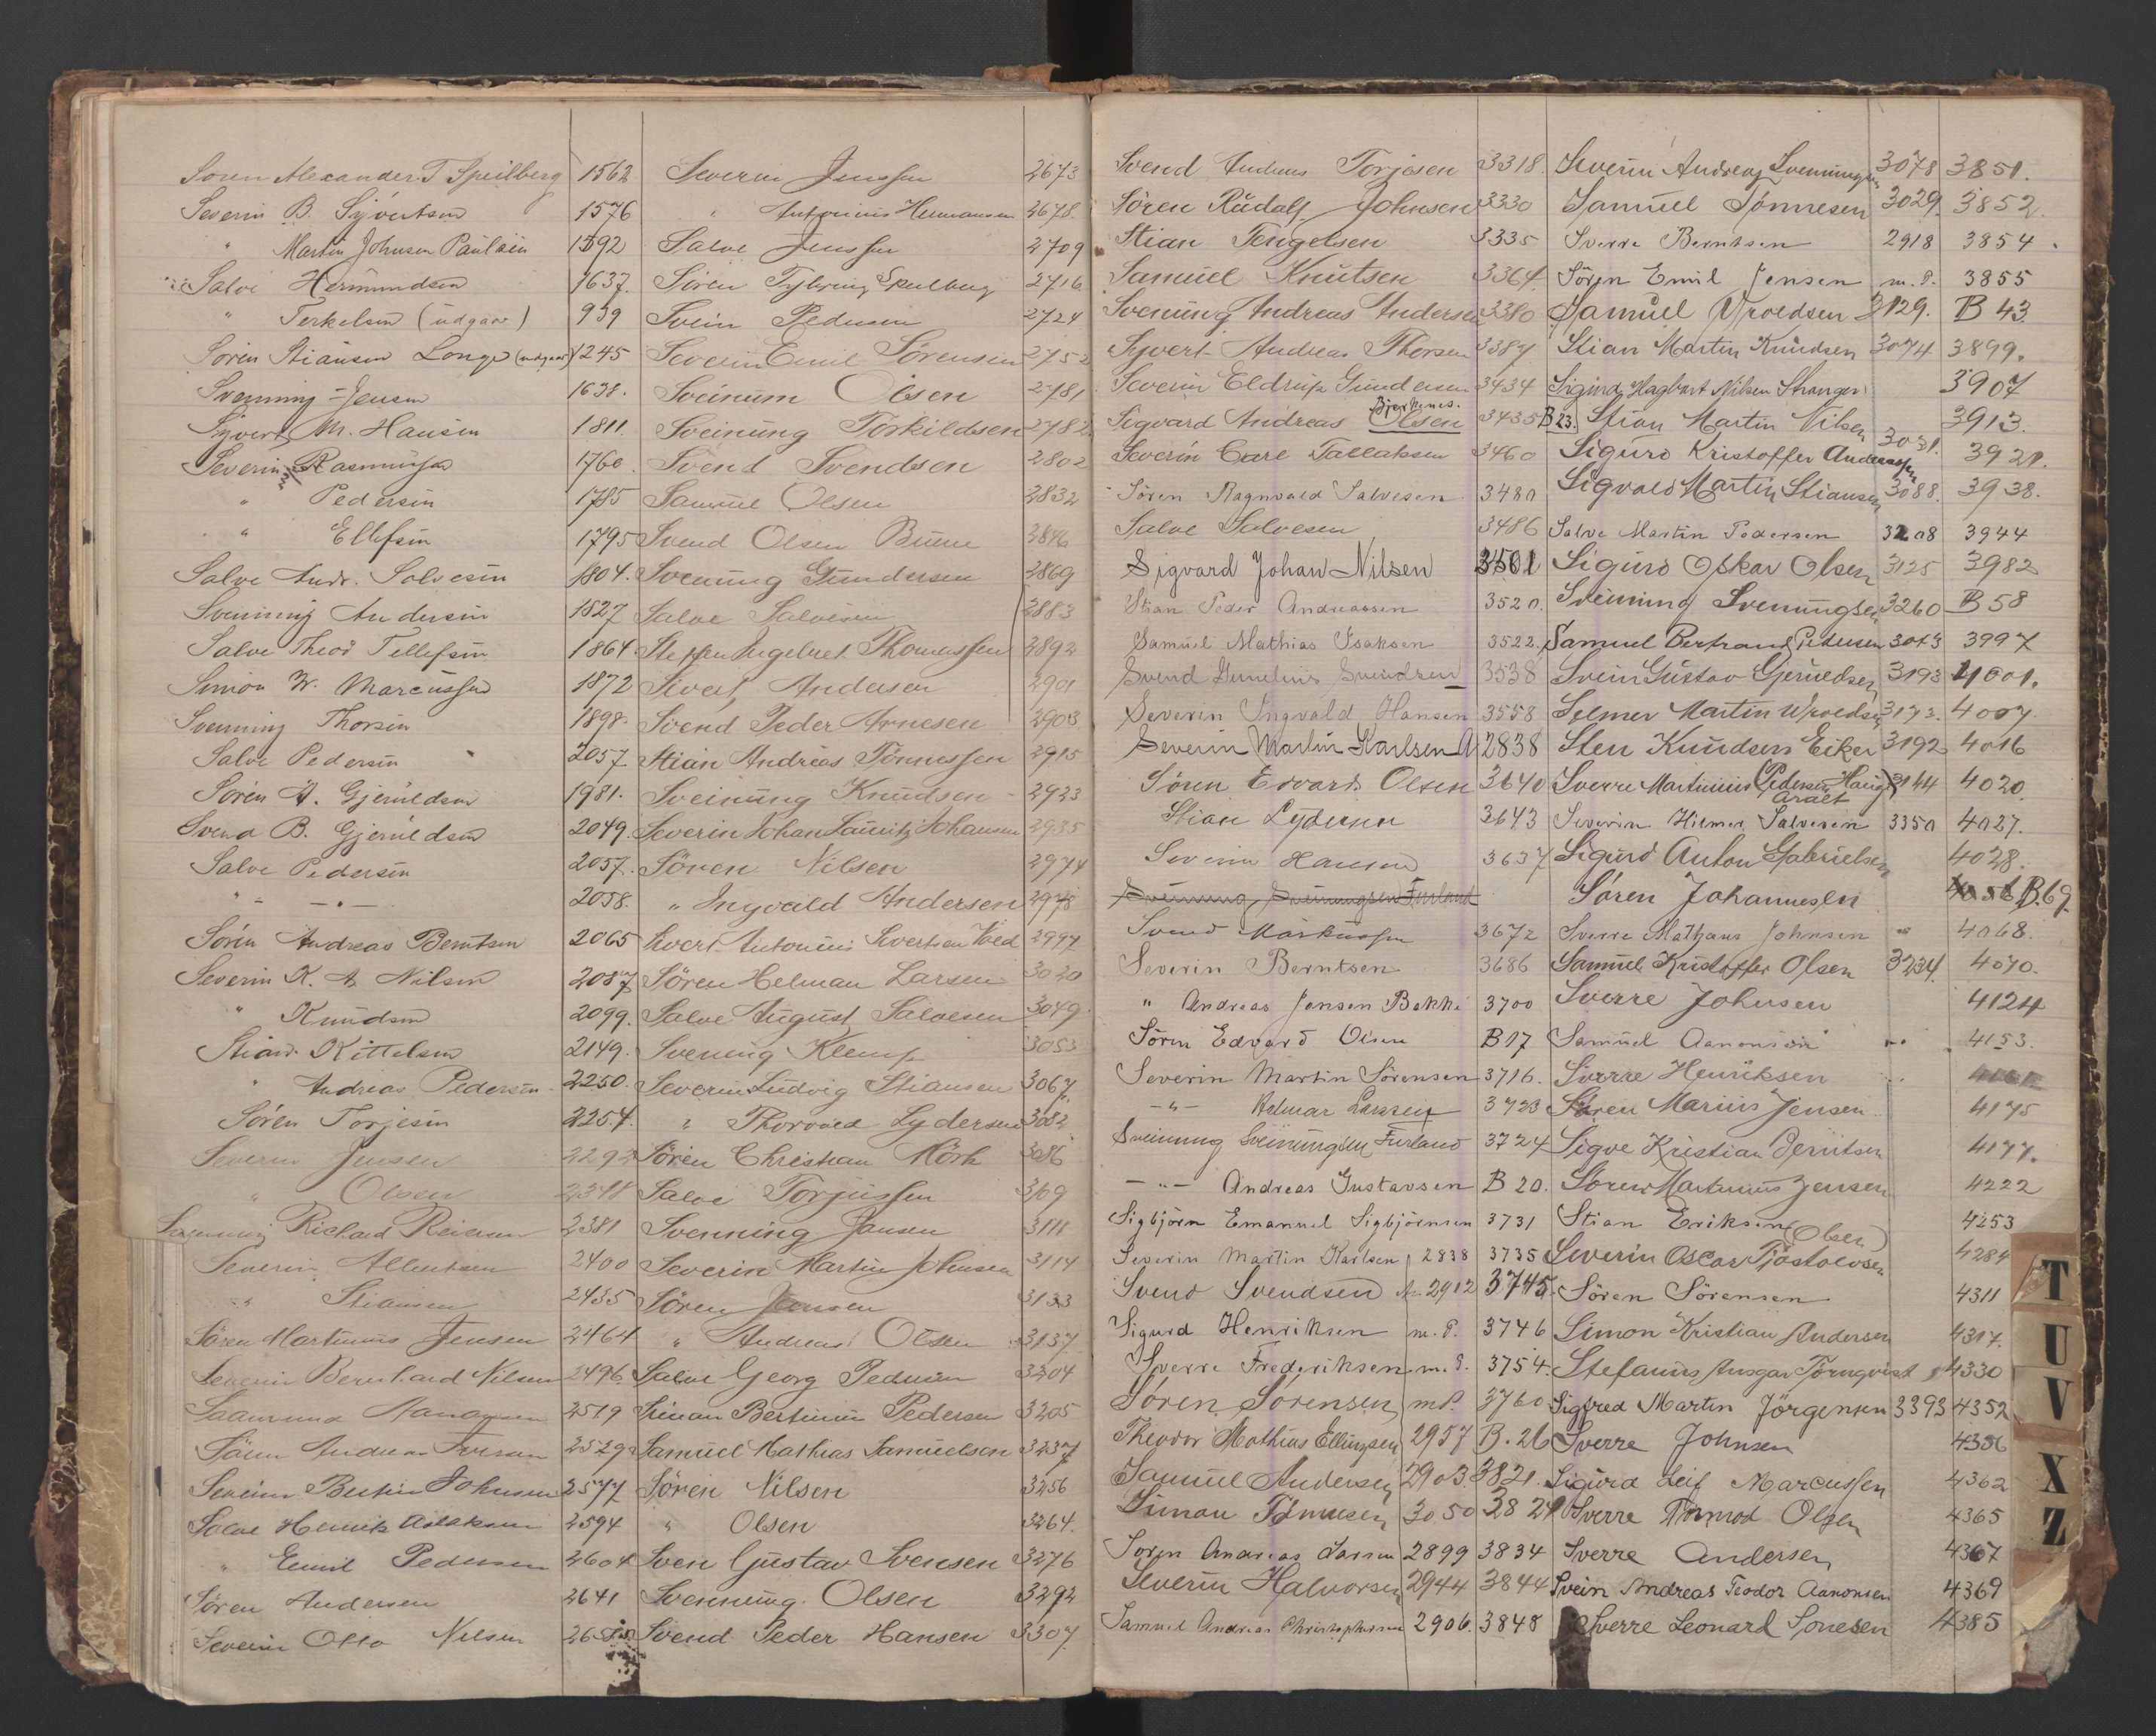 Søren Alexander T Speilberg 1562
Severin B. Syvertsen 1576
" Martin Johnsen Paulsen 1592
Salve Hermundsen 1637.
" Terkelsen (udgaar) 939
Søren Stiansen Longe (udgaar) 1245
Svenning Jensen 1638.
Syvert M. Hansen 1811.
Severin Rasmussen 1760.
" Pedersen 1785
" Ellefsen 1795
Salve Andr. Salvesen 1804.
Svenning Andersen 1827
Salve Theod Tellefsen 1864
Simon W. Marcussen 1872
Svenning Thorsen 1898.
Salve Pedersen 2057
Søren A. Gjeruldsen 1981.
Svend B. Gjeruldsen 2049.
Salve Pedersen 2057.
" - " - 2058.
Søren Andreas Berntsen 2065
Severin K. A. Nilsen 2087
" Knudsen 2099.
Stian Kittelsen 2149.
" Andreas Pedersen 2250.
Søren Torjesen 2254.
Severin Jensen 2293
" Olsen 2318
Svenning Richard Reiersen 2381
Severin Albertsen 2400
" Stiansen 2435
Søren Martinius Jensen 2464
Severin Bernhard Nilsen 2496.
Saamund 2519
Søren Andreas Iversen 2529
Severin Bertin Johnsen 2577
Salve Henrik Aslaksen 2594
" Emil Pedersen 2604
Søren Andersen 2641
Severin Otto Nilsen
Severin Jenssen 2673
" Antonius Hermansen 2678.
Salve Jenssen 2709
Søren Speilberg 2716
Svein Pedersen 2724
Severin Emil Sørensen 2752
Sveinum Olsen 2781
Sveinung Torkildsen 2782
Svend Svendsen 2802
Samuel Olsen 2832
Svend Olsen Buene 2846
Svenung Gundersen 2869
Salve Salvesen 2883
Steffen Ingebret Thomassen 2892
Sivert Andersen 2901
Svend Peder Arnesen 2903
Stian Andreas Tønnessen 2915
Sveinung Knudsen 2923
Severin Johan Lauritz Johansen 2935
Søren Nilsen 2974
" Ingvald Andersen 2978
Sivert Antonius Sivertsen Vold 2994
Søren Helman Larsen 3020
Salve August Salvesen 3049
Svenung Klemp 3053
Severin Ludvig Stiansen 3067.
" Thorvald Lydersen 3082
Søren Christian Mörk 3086
Salve Torjussen 3109
Svenning Jansen 3111
Severin Martin Johnsen 3114
Søren Jensen 3133
" Andreas Olsen 3137
Salve Georg Pedersen 3204
Simon Bertinius Pedersen 3205
Samuel Mathias Samuelsen 3237
Søren Nilsen 3256
" Olsen 3264.
Sven Gustav Svensen 3276
Svenning Olsen 3292
Svend Peder Hansen 3307
Svend Andreas Torjesen 3318.
Søren Rudolf Johnsen 3330
Stian Tengelsen 3335
Samuel Knutsen 3364.
Svenung Andreas Andersen 3380
Syvert Andreas Thorsen 3387
Severin Eldrup Gundersen 3434
Bjerknes.
Sigvard Andreas Olsen 3435 B23.
Severin Carl Tallaksen 3460
Søren Ragnvald Salvesen 3480
Salve Salvesen 3486
Sigvard Johan Nilsen 3501
Stian Peder Andreassen 3520.
Samuel Mathias Isaksen 3522.
Svend Svendsen 3538
Severin Ingvald Hansen 3558
Severin Martin Karlsen A 2838
Søren Edvard Olsen 3640
Stian Lydersen 3643
Severin Hansen 3637
Sveinung Sveinungsen Furland
Svend Markussen 3672
Severin Berntsen 3686
" Andreas Jensen Bakke 3700
Søren Edvard Olsen B17
Severin Martin Sørensen 3716.
- " - Helmar Larssen 3723
Sveinung Sveinungsen Furland 3724
- " - Andreas Gustavsen B 20.
Sigbjörn Emanuel Sigbjörnsen 3731
Severin Martin Karlsen 2838 3735
Svend Svendsen 2912 3745
Sigurd Henriksen m. P. 3746
Sverre Frederiksen m. P. 3754.
Søren Sørensen m P. 3760
Theodor Mathias Ellingsen 2957 B. 26
Samuel Andersen 2903. 3821.
Simon Tønnesen 3050 3824
Søren Andreas Larsen 2899 3834
Severin Halvorsen 2944 3844
Samuel Andreas Christophersen 2906. 3848
Severin Andreas Svenningsen 3078 3851.
Samuel Tønnesen 3029. 3852.
Sverre Berntsen 2918 3854.
Søren Emil Jensen m. P. 3855
Samuel Aroldsen 3129. B 43.
Stian Martin Knudsen 3074 3899.
Sigurd Hagbart Nilsen Stranger 3907
Stian Martin Nilsen 3913.
Sigurd Kristoffer Andreassen 3031. 3921.
Sigvald Martin Stiansen 3088. 3938.
Salve Martin Pedersen 3208 3944
Sigurd Oskar Olsen 3125 3982
Sveinung Svenungsen 3260 B 58
Samuel Bertrand Pedersen 3043 3997
Svein Gustav Gjeruldsen 3193 4001.
Selmer Martin Aroldsen 3173. 4007
Sten Knudsen Eiker 3192 4016
Sverre Martinius Pedersen Hauge 3144 4020.
Severin Hilmer Salvesen 3350 4027.
Sigurd Anton Gabrielsen 4028.
Søren Johannesen 4056 B.69.
Sverre Mathæus Johnsen " 4068.
Samuel Kristoffer Olsen 3234. 4070.
Sverre Johnsen 4124
Samuel Aanonsen " 4153.
Sverre Henriksen
Søren Marius Jensen 4175
Sigve Kristian Berntsen 4177.
Søren Martinius Jensen 4222
Stian Eriksen (Olsen) 4253
Severin Oscar Tjøstolvsen 4284
Søren Sørensen 4311
Simon Kristian Andersen 4317.
Stefanus Ansgar Törnqvist 4330
Sigfred Martin Jörgensen 3393 4352
Sverre Johnsen 4356
Sigurd Leif Marcussen 4362
Sverre Tormod Olsen 4365
Sverre Andersen 4367
Svein Andreas Teodor Aanonsen 4369
Sverre Leonard Sonesen 4385
T
U
V
X
Z